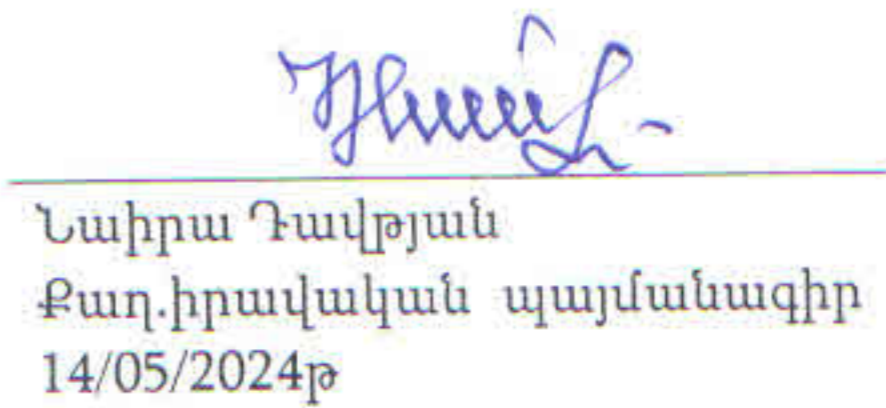 Նաիրա Դավթյան
Քաղ.իրավական պայմանագիր
14/05/2024թ